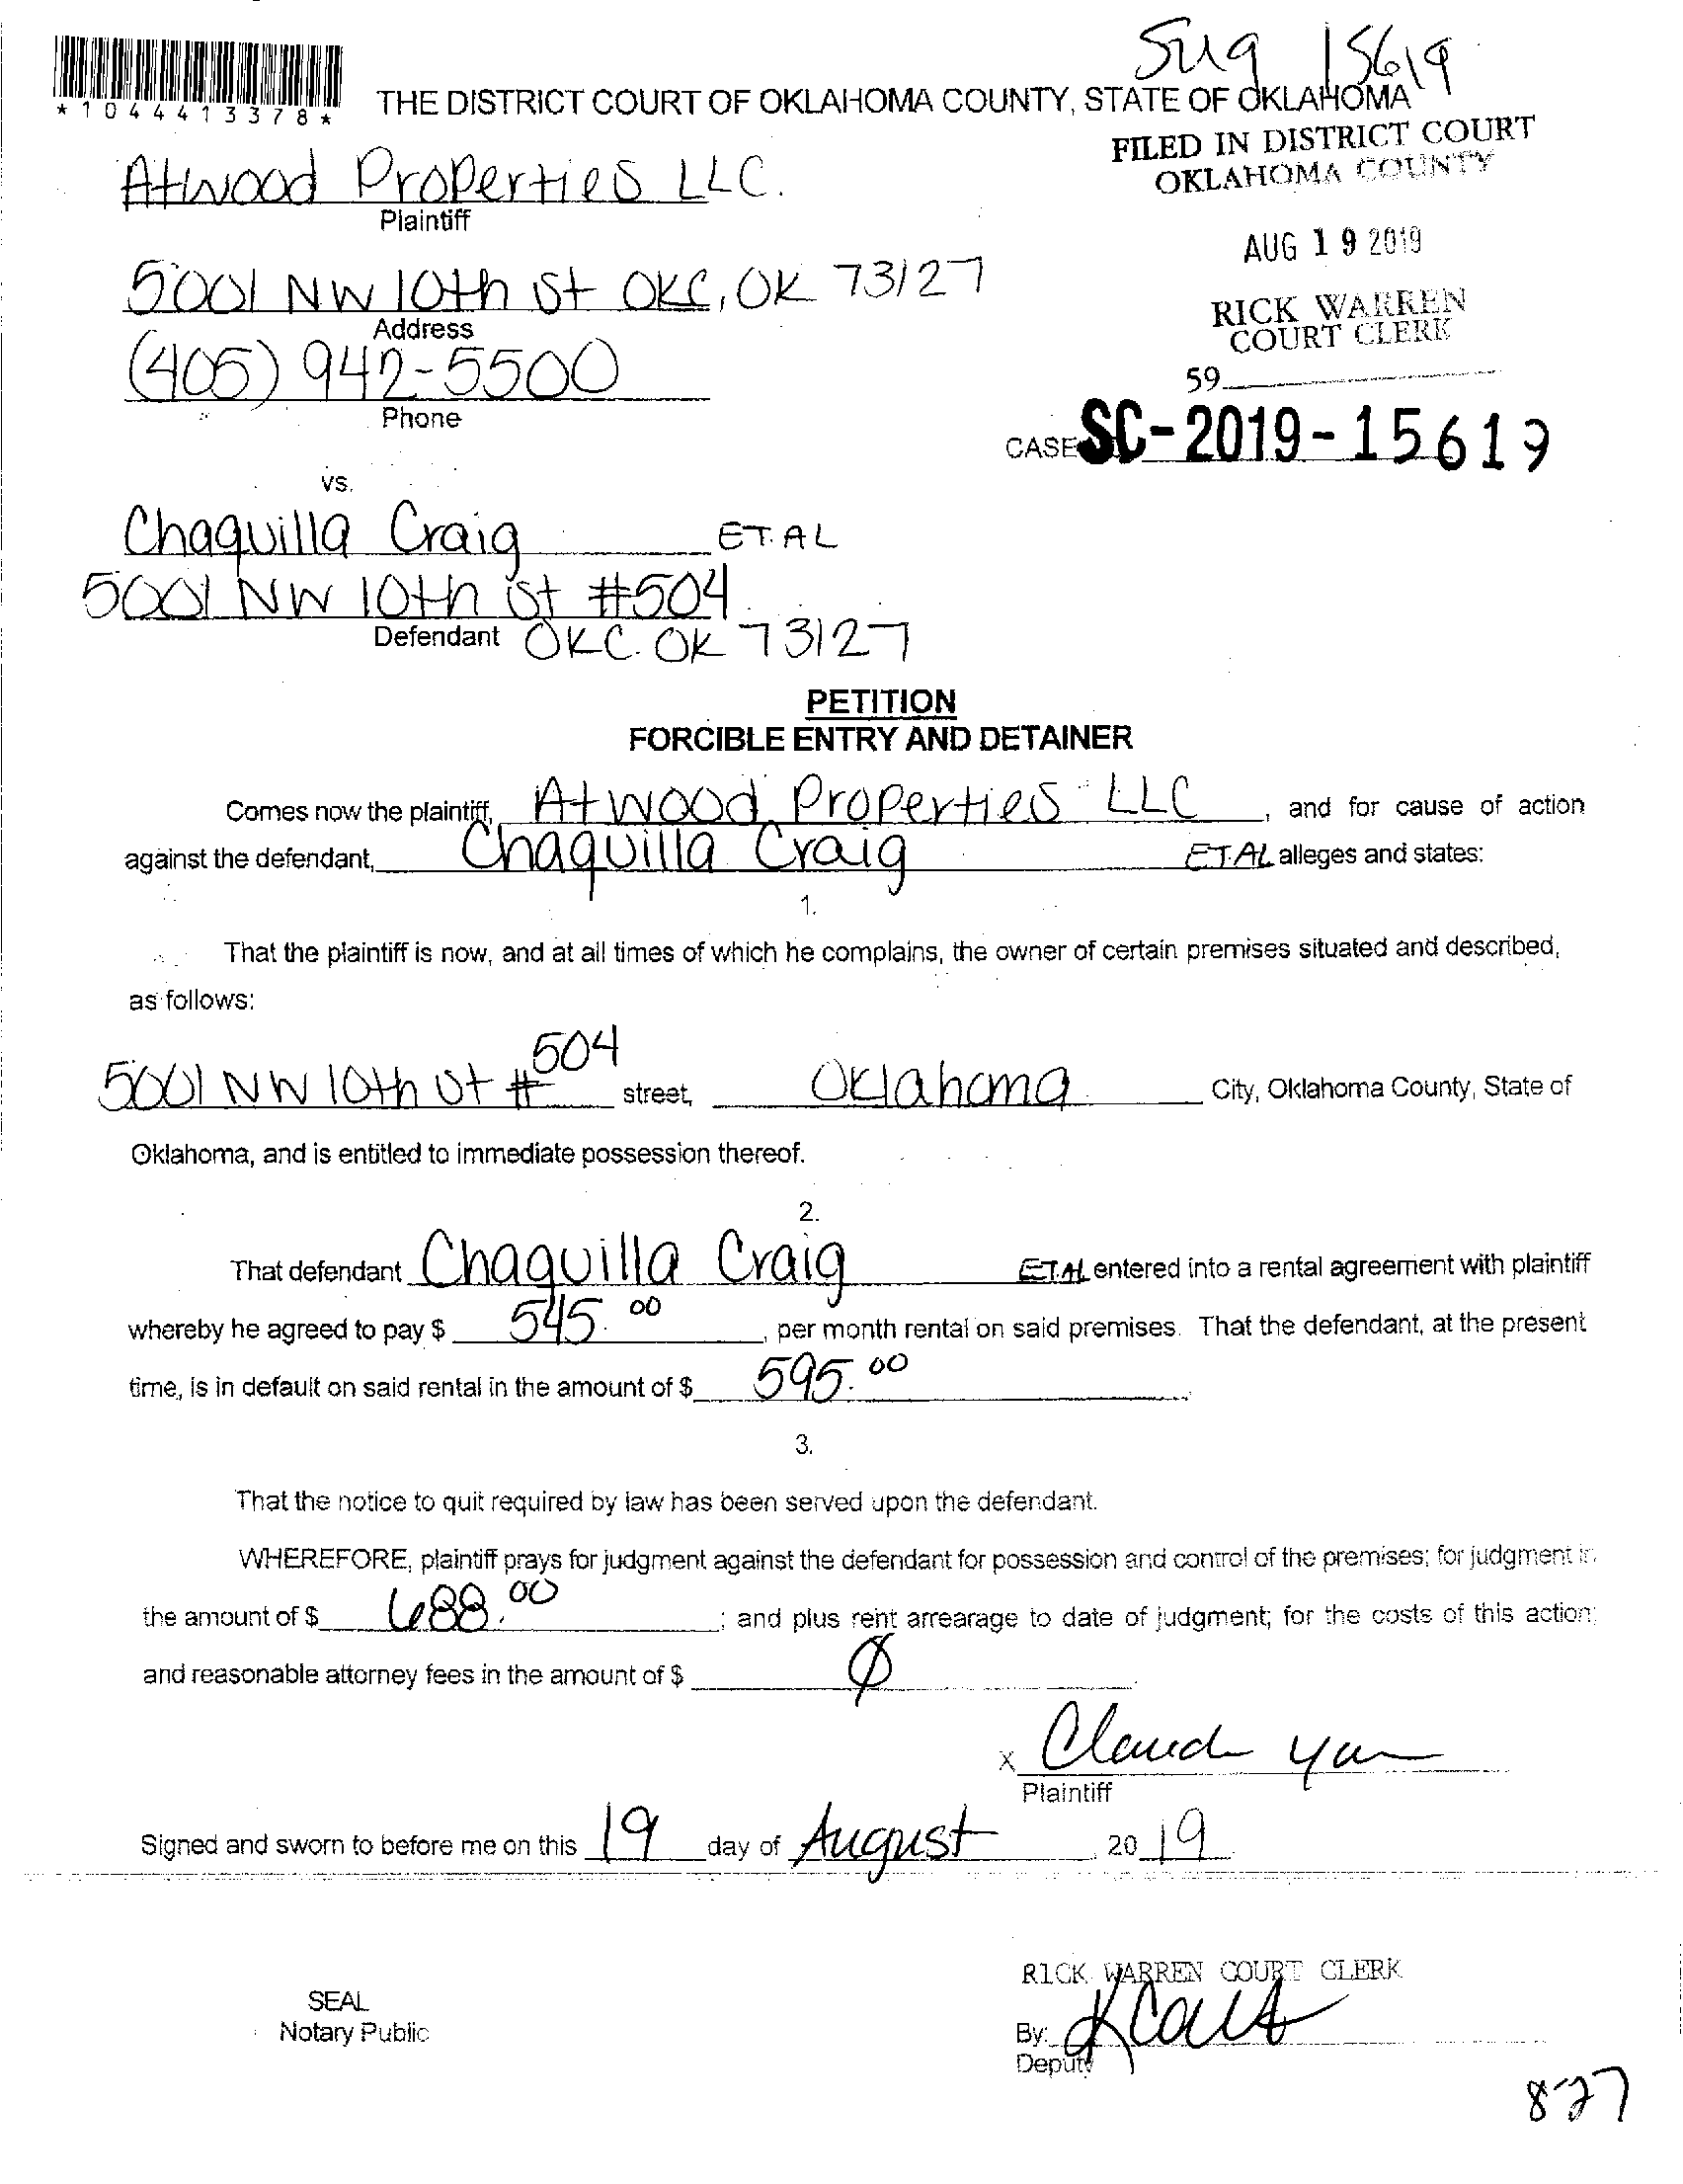 Sug 15619
*1044413378*
THE DISTRICT COURT OF OKLAHOMA COUNTY, STATE OF OKLAHOMA
FILED IN DISTRICT COURT
OKLAHOMA COUNTY
Atwood Properties LLC.
Plaintiff
AUG 19 2019
5001 NW 10th St OKC, OK 73127
Address
RICK WARREN
COURT CLERK
(405) 942-5500
Phone
59
CASE SC-2019-15619
vs.
Chaquilla Craig ET. AL
5001 NW 10th St #504
Defendant OKC. OK 73127
PETITION
FORCIBLE ENTRY AND DETAINER
Comes now the plaintiff, Atwood Properties LLC, and for cause of action
against the defendant, Chaquilla Craig ET.AL alleges and states:
1.
That the plaintiff is now, and at all times of which he complains, the owner of certain premises situated and described,
as follows:
5001 NW 10th St #504 street, Oklahoma City, Oklahoma County, State of
Oklahoma, and is entitled to immediate possession thereof.
2.
That defendant Chaquilla Craig ET.AL entered into a rental agreement with plaintiff
whereby he agreed to pay $ 545.00, per month rental on said premises. That the defendant, at the present
time, is in default on said rental in the amount of $ 595.00.
3.
That the notice to quit required by law has been served upon the defendant.
WHEREFORE, plaintiff prays for judgment against the defendant for possession and control of the premises; for judgment in
the amount of $ 688.00; and plus rent arrearage to date of judgment; for the costs of this action;
and reasonable attorney fees in the amount of $ Ø
x
Plaintiff
Signed and sworn to before me on this 19 day of August, 2019
RICK WARREN COURT CLERK
SEAL
Notary Public
By:
Deputy
827